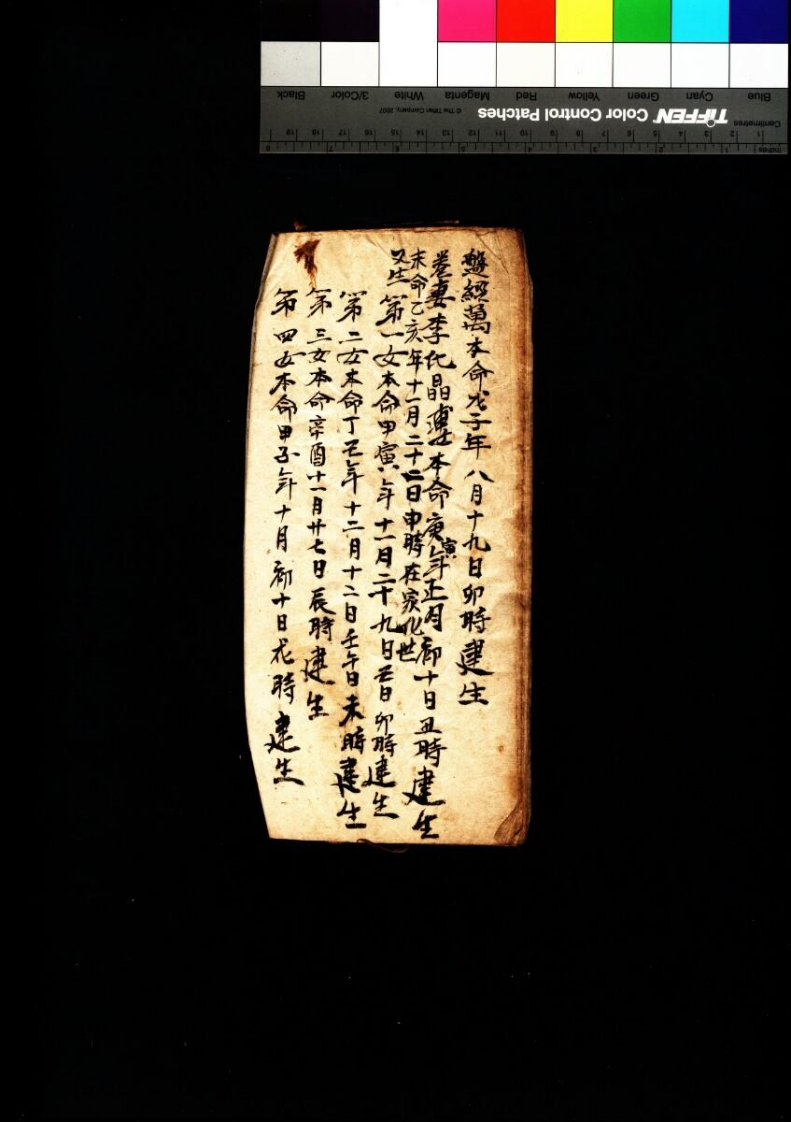 盤經萬本命戊子年八月十九日卯時建生
妻李氏晶 本命庚寅年正月初十日丑時建生
末命乙亥年十一月二十二日申時在家化世
又生第一女本命甲寅年十一月二十九日 日卯時建生
第二女本命丁 年十二月十二日壬午日未時建生
第三女本命辛酉十一月廿七日辰時建生
第四女本命甲子年十月初十日 時建生
Blue Cyan Green Yellow Red Magenta White 3/Color Black
TIFFEN Color Control Patches
© The Tiffen Company, 2007
Centimetres
Inches